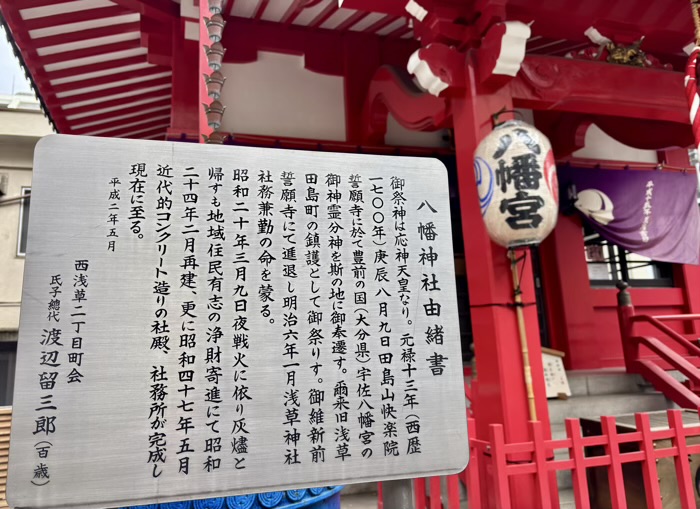 八幡神社由緒書
御祭神は応神天皇なり。元禄十三年（西歴
一七〇〇年）庚辰 八月九日田島山快楽院
誓願寺に於て豊前の国（大分県）宇佐八幡宮の
御神霊分神を斯の地に御奉遷す。爾来旧浅草
田島町の鎮護として御祭りす。御維新前
誓願寺にて進退し明治六年一月 浅草神社
社務兼勤の命を蒙る。
昭和二十年三月九日夜戦火に依り灰燼と
帰すも地域住民有志の浄財寄進にて昭和
二十四年二月再建、更に昭和四十七年五月
近代的コンクリート造りの社殿、社務所が完成し
現在に至る。
平成二年五月
西浅草二丁目町会
氏子總代 渡辺留三郎（百歳）
八幡宮